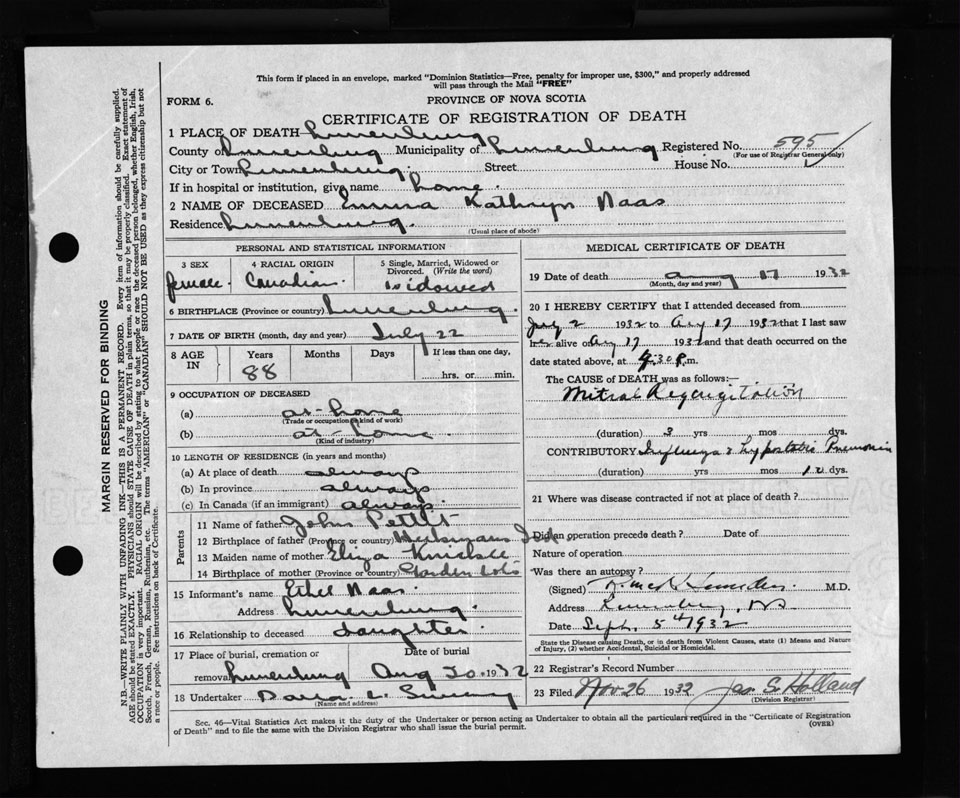 This form if placed in an envelope, marked "Dominion Statistics—Free, penalty for improper use, $300," and properly addressed
will pass through the Mail "FREE"
FORM 6.
PROVINCE OF NOVA SCOTIA
CERTIFICATE OF REGISTRATION OF DEATH
1 PLACE OF DEATH— Lunenburg
County of Lunenburg Municipality of Lunenburg Registered No. 595
(For use of Registrar General only)
City or Town Lunenburg. Street House No.
If in hospital or institution, give name home.
2 NAME OF DECEASED Emma Kathryn Naas
Residence Lunenburg.
(Usual place of abode)
PERSONAL AND STATISTICAL INFORMATION
3 SEX female.
4 RACIAL ORIGIN Canadian.
5 Single, Married, Widowed or Divorced. (Write the word) widowed
6 BIRTHPLACE (Province or country) Lunenburg.
7 DATE OF BIRTH (month, day and year) July 22
8 AGE IN Years Months Days If less than one day,
88 hrs. or min.
9 OCCUPATION OF DECEASED
(a) at-home
(Trade or occupation or kind of work)
(b) at-home.
(Kind of industry)
10 LENGTH OF RESIDENCE (in years and months)
(a) At place of death always
(b) In province always
(c) In Canada (if an immigrant) always
Parents
11 Name of father John
12 Birthplace of father (Province or country)
13 Maiden name of mother Eliza
14 Birthplace of mother (Province or country) Garden Lots
15 Informant's name Ethel Naas.
Address Lunenburg.
16 Relationship to deceased daughter.
17 Place of burial, cremation or removal Lunenburg
Date of burial Aug 20 1932
18 Undertaker
(Name and address)
MEDICAL CERTIFICATE OF DEATH
19 Date of death Aug 17 1932
(Month, day and year)
20 I HEREBY CERTIFY that I attended deceased from
July 2 1932 to Aug 17 1932 that I last saw
her alive on Aug 17 1932 and that death occurred on the
date stated above, at 4.30 P.m.
The CAUSE OF DEATH was as follows:—
Mitral Regurgitation
(duration) 3 yrs mos dys.
CONTRIBUTORY Influenza & Hypostatic Pneumonia
(duration) yrs mos 10 dys.
21 Where was disease contracted if not at place of death?
Did an operation precede death? Date of
Nature of operation
Was there an autopsy?
(Signed) M.D.
Address Lunenburg, NS
Date Sept. 5th 1932
State the Disease causing Death, or in death from Violent Causes, state (1) Means and Nature
of Injury, (2) whether Accidental, Suicidal or Homicidal.
22 Registrar's Record Number
23 Filed Nov 26 1932 Jas S. Holland
(Division Registrar)
Sec. 46—Vital Statistics Act makes it the duty of the Undertaker or person acting as Undertaker to obtain all the particulars required in the "Certificate of Registration
of Death" and to file the same with the Division Registrar who shall issue the burial permit.
(OVER)
MARGIN RESERVED FOR BINDING
N.B.—WRITE PLAINLY WITH UNFADING INK—THIS IS A PERMANENT RECORD. Every item of information should be carefully supplied.
AGE should be stated EXACTLY. PHYSICIANS should STATE CAUSE OF DEATH in plain terms, so that it may be properly classified. Exact statement of
OCCUPATION is very important. RACIAL ORIGIN will be described by stating to what people or race the deceased person belonged, whether English, Irish,
Scotch, French, German, Russian, Ruthenian, etc. The terms "AMERICAN" or "CANADIAN" SHOULD NOT BE USED as they express citizenship but not
a race or people. See instructions on back of Certificate.